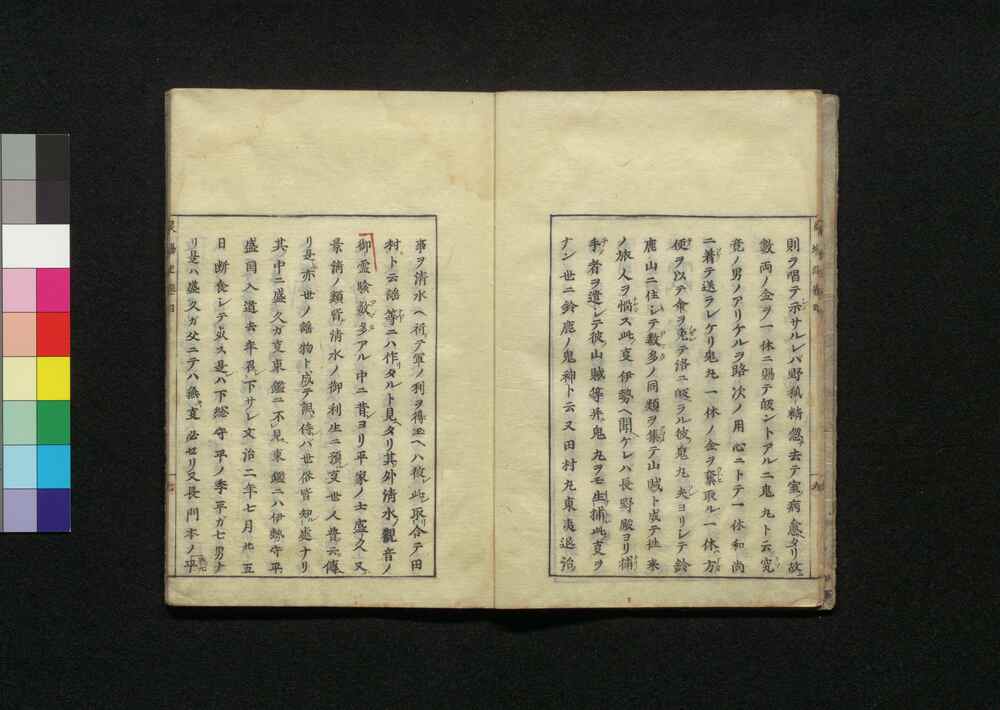 則ヲ唱テ示サルレバ野狐精忽去テ室病愈タリ故
数両ノ金ヲ一休ニ與テ皈ントアルニ鬼九ト云究
竟ノ男ノアリケルヲ路次ノ用心ニトテ一休和尚
ニ着テ送ラレケリ鬼九一休ノ金ヲ奪取ル一休方
便ヲ以テ命ヲ免テ洛ニ皈ラル彼鬼九夫ヨリシテ鈴
鹿山ニ住シテ数多ノ同類ヲ集テ山賊ト成テ徃来
ノ旅人ヲ悩ス此変伊勢ヘ聞ケレハ長野殿ヨリ捕
手ノ者ヲ遣シテ彼山賊等并鬼九ヲモ生捕此変ヲ
ナン世ニ鈴鹿ノ鬼神ト云又田村丸東夷退治
事ヲ清水ヘ祈テ軍ノ利ヲ得玉ヘハ彼此取合テ田
村ト云謡等ニハ作タルト見タリ其外清水ノ觀音ノ
御霊驗数多アル中ニ昔ヨリ平家ノ士盛久又
景清ノ類皆清水ノ御利生ニ預変世人普云傳
リ是亦世ノ謡物ト成テ誤傳バ世俗皆知処ナリ
其中ニ盛久カ変東鑑ニ不見東鑑ニハ伊勢守平
盛国入道去年召下サレ文治二年七月廿五
日断食シテ死ス是ハ下総守平ノ季平ガ七男ナ
リ是ハ盛久ガ父ニテハ無変必セリ又長門本ノ平